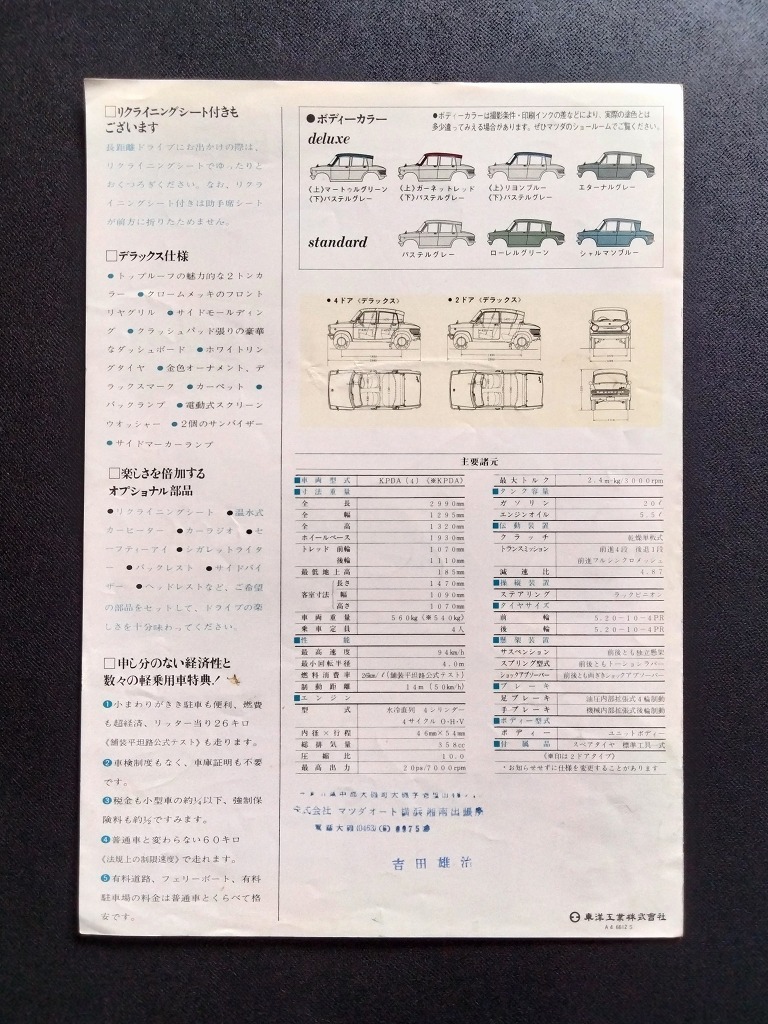 □リクライニングシート付きも
ございます
長距離ドライブにお出かけの際は、
リクライニングシートでゆったりと
おくつろぎください。なお、リクラ
イニングシート付きは助手席シート
が前方に折りたためません。
□デラックス仕様
●トップルーフの魅力的な2トンカ
ラー ●クロームメッキのフロント
リヤグリル ●サイドモールディン
グ ●クラッシュパッド張りの豪華
なダッシュボード ●ホワイトリン
グタイヤ ●金色オーナメント、デ
ラックスマーク ●カーペット ●
バックランプ ●電動式スクリーン
ウオッシャー ●2個のサンバイザー
●サイドマーカーランプ
□楽しさを倍加する
オプショナル部品
●リクライニングシート ●温水式
カーヒーター ●カーラジオ ●セ
ーフティーアイ ●シガレットライタ
ー ●バックレスト ●サイドバイ
ザー ●ヘッドレストなど、ご希望
の部品をセットして、ドライブの楽
しさを十分味わってください。
□申し分のない経済性と
数々の軽乗用車特典!
❶小まわりがきき駐車も便利、燃費
も超経済、リッター当り26キロ
《舗装平坦路公式テスト》も走ります。
❷車検制度もなく、車庫証明も不要
です。
❸税金も小型車の約¼以下、強制保
険料も約⅓ですみます。
❹普通車と変わらない60キロ
《法規上の制限速度》で走れます。
❺有料道路、フェリーボート、有料
駐車場の料金は普通車とくらべて格
安です。
●ボディーカラー
●ボディーカラーは撮影条件・印刷インクの差などにより、実際の塗色とは
多少違ってみえる場合があります。ぜひマツダのショールームでご覧ください。
deluxe
《上》マートゥルグリーン 《上》ガーネットレッド 《上》リヨンブルー エターナルグレー
《下》パステルグレー 《下》パステルグレー 《下》パステルグレー
standard
パステルグレー ローレルグリーン シャルマンブルー
●4ドア《デラックス》 ●2ドア《デラックス》
主要諸元
■車両型式 KPDA(4)(※KPDA)
■寸法重量
全長 2990mm
全幅 1295mm
全高 1320mm
ホイールベース 1930mm
トレッド 前輪 1070mm
後輪 1110mm
最低地上高 185mm
客室寸法 長さ 1470mm
幅 1090mm
高さ 1070mm
車両重量 560kg(※540kg)
乗車定員 4人
■性能
最高速度 94km/h
最小回転半径 4.0m
燃料消費率 26km/ℓ(舗装平坦路公式テスト)
制動距離 14m(50km/h)
■エンジン
型式 水冷直列 4シリンダー
4サイクルO・H・V
内径×行程 46mm×54mm
総排気量 358cc
圧縮比 10.0
最高出力 20ps/7000rpm
最大トルク 2.4m-kg/3000rpm
■タンク容量
ガソリン 20ℓ
エンジンオイル 5.5ℓ
■伝動装置
クラッチ 乾燥単板式
トランスミッション 前進4段 後退1段
前進フルシンクロメッシュ
減速比 4.87
■操縦装置
ステアリング ラックピニオン
■タイヤサイズ
前輪 5.20-10-4PR
後輪 5.20-10-4PR
■懸架装置
サスペンション 前後とも独立懸架
スプリング型式 前後ともトーションラバー
ショックアブソーバー 前後とも両ぎきショックアブソーバー
■ブレーキ
足ブレーキ 油圧内部拡張式4輪制動
手ブレーキ 機械内部拡張式後輪制動
■ボディー型式
ボディー ユニットボディー
■付属品 スペアタイヤ 標準工具一式
(※印は2ドアタイプ)
・お知らせせずに仕様を変更することがあります
株式会社 マツダオート横浜湘南出張所
電話大磯(0463)
吉田雄治
東洋工業株式会社